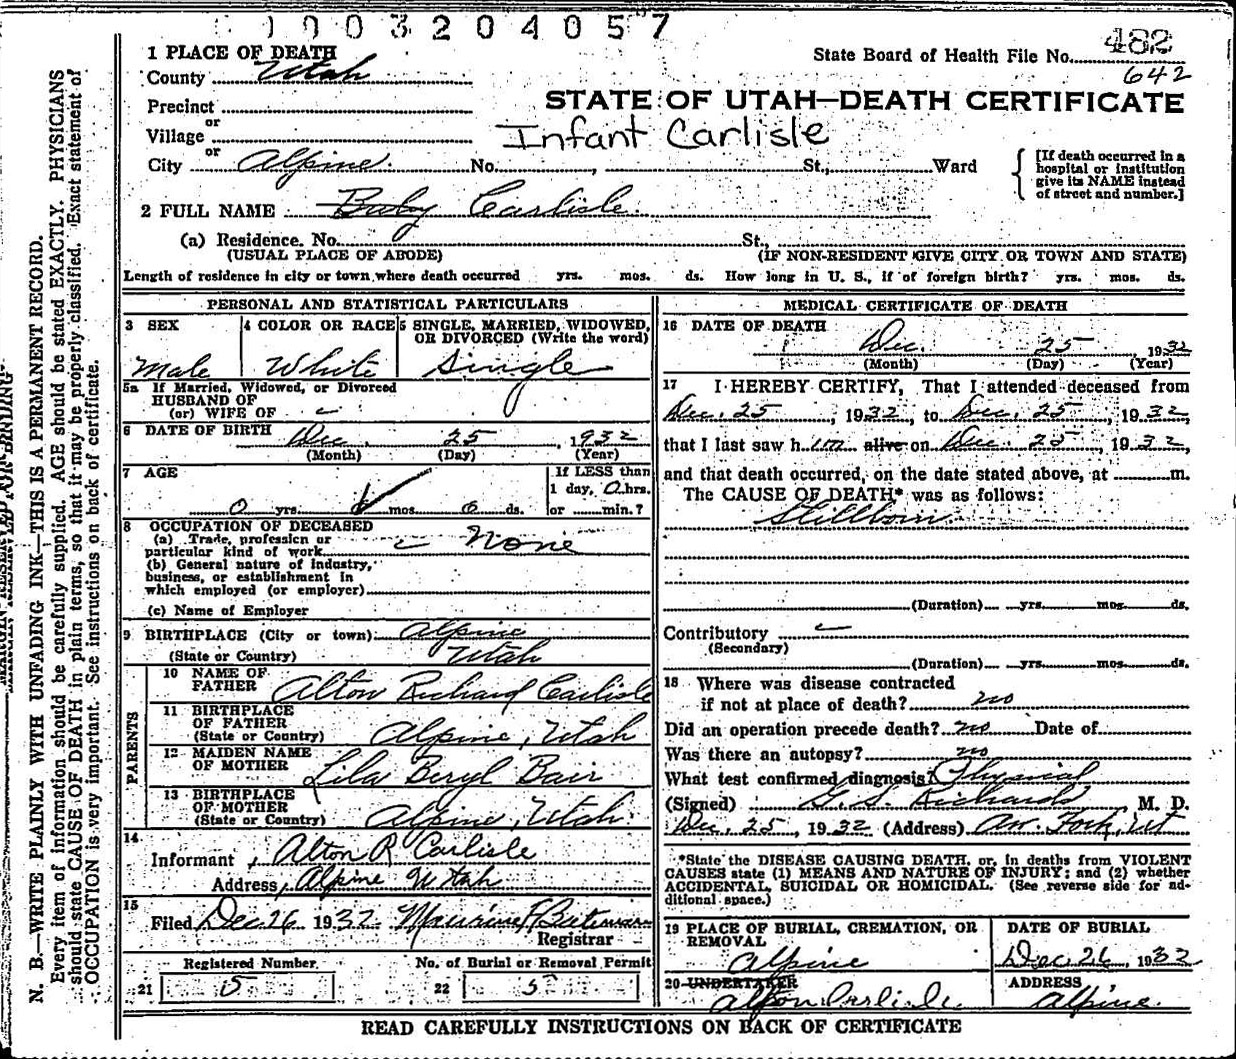 1003204057
1 PLACE OF DEATH
State Board of Health File No. 482
County Utah
642
Precinct
STATE OF UTAH—DEATH CERTIFICATE
or
Village
Infant Carlisle
or
City Alpine. No. , St., Ward
[If death occurred in a
hospital or institution
give its NAME instead
of street and number.]
2 FULL NAME Baby Carlisle
(a) Residence. No. St.,
(USUAL PLACE OF ABODE) (IF NON-RESIDENT GIVE CITY OR TOWN AND STATE)
Length of residence in city or town where death occurred yrs. mos. ds. How long in U. S., if of foreign birth? yrs. mos. ds.
PERSONAL AND STATISTICAL PARTICULARS
3 SEX 4 COLOR OR RACE 5 SINGLE, MARRIED, WIDOWED,
OR DIVORCED (Write the word)
Male White Single
5a If Married, Widowed, or Divorced
HUSBAND OF
(or) WIFE OF
6 DATE OF BIRTH Dec. 25, 1932
(Month) (Day) (Year)
7 AGE If LESS than
1 day, 0 hrs.
0 yrs. 0 mos. 0 ds. or min.?
8 OCCUPATION OF DECEASED
(a) Trade, profession or
particular kind of work None
(b) General nature of industry,
business, or establishment in
which employed (or employer)
(c) Name of Employer
9 BIRTHPLACE (City or town) Alpine
(State or Country) Utah
PARENTS
10 NAME OF
FATHER Alton Richard Carlisle
11 BIRTHPLACE
OF FATHER
(State or Country) Alpine, Utah
12 MAIDEN NAME
OF MOTHER Lila Beryl Bair
13 BIRTHPLACE
OF MOTHER
(State or Country) Alpine, Utah
14
Informant Alton R Carlisle
Address Alpine Utah
15
Filed Dec 26 1932
Registrar
Registered Number No. of Burial or Removal Permit
21 5 22 5
MEDICAL CERTIFICATE OF DEATH
16 DATE OF DEATH
Dec. 25 1932
(Month) (Day) (Year)
17 I HEREBY CERTIFY, That I attended deceased from
Dec. 25, 1932, to Dec. 25, 1932,
that I last saw h im alive on Dec. 25, 1932,
and that death occurred, on the date stated above, at m.
The CAUSE OF DEATH* was as follows:
Stillborn
(Duration) yrs. mos. ds.
Contributory
(Secondary)
(Duration) yrs. mos. ds.
18 Where was disease contracted
if not at place of death? no
Did an operation precede death? no Date of
Was there an autopsy? no
What test confirmed diagnosis? Physical
(Signed) G. S. Richards, M. D.
Dec. 25, 1932 (Address) Am. Fork, Ut
*State the DISEASE CAUSING DEATH, or, in deaths from VIOLENT
CAUSES state (1) MEANS AND NATURE OF INJURY; and (2) whether
ACCIDENTAL, SUICIDAL OR HOMICIDAL. (See reverse side for ad-
ditional space.)
19 PLACE OF BURIAL, CREMATION, OR
REMOVAL
Alpine
DATE OF BURIAL
Dec 26, 1932
20 UNDERTAKER
Alton Carlisle
ADDRESS
Alpine.
READ CAREFULLY INSTRUCTIONS ON BACK OF CERTIFICATE
N. B.—WRITE PLAINLY WITH UNFADING INK—THIS IS A PERMANENT RECORD.
Every item of information should be carefully supplied. AGE should be stated EXACTLY. PHYSICIANS
should state CAUSE OF DEATH in plain terms, so that it may be properly classified. Exact statement of
OCCUPATION is very important. See instructions on back of certificate.
MARGIN RESERVED FOR BINDING